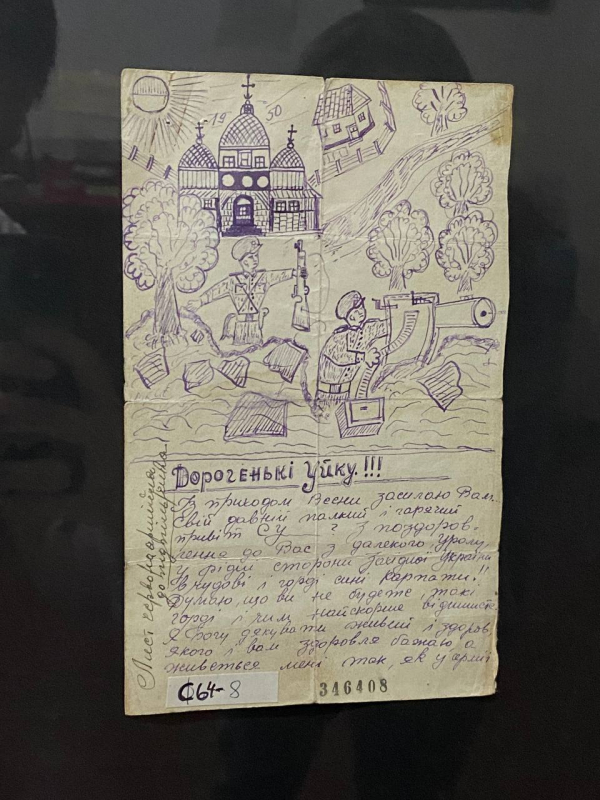 19 50
Дорогенькі Уйку.!!!
Із приходом Весни засилаю Вам
Свій давній палкий і гарячий
привіт СУ ? з поздоров-
лення до Вас з далекого Уралу
у рідій сторони західної України
в чудові і горді сині Карпати!!
Думаю, що ви не будете такі
горді і чим найскорше відпишете
Я Богу дякувати живий і здоров
якого і вам здоровля бажаю а
живеться мені так, як у армії
Лист червоноармійця
до
С64-8
346408